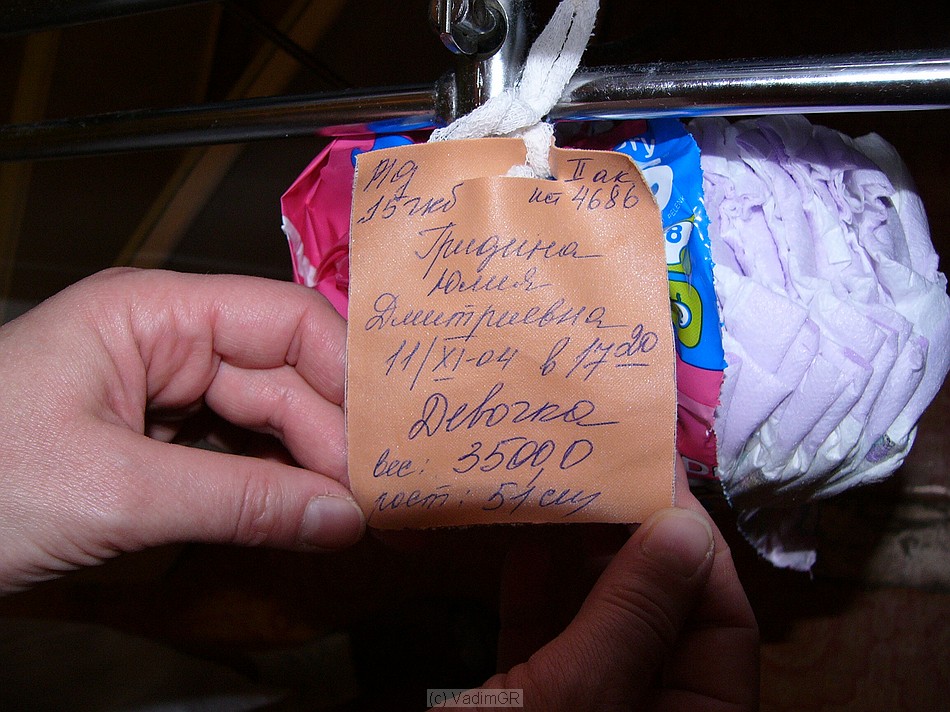 15 гкб
II ак
ист 4686
Гридина
Юлия
Дмитриевна
11/XI-04 в 17 20
Девочка
вес: 3500,0
рост: 51 см
8
(c) VadimGR